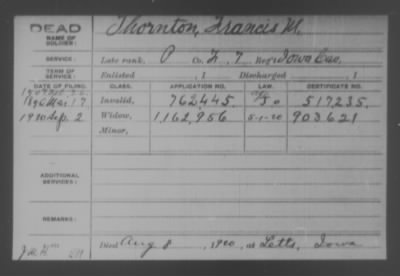 DEAD
NAME OF SOLDIER:
Thornton, Francis M.
SERVICE:
Late rank, P Co. F, 7 Reg't Iowa Cav.
TERM OF SERVICE:
Enlisted , 1 Discharged , 1
DATE OF FILING. CLASS. APPLICATION NO. LAW. CERTIFICATE NO.
1896 Mar. 17 Invalid, 762,445. 517235.
1920 Sep. 2 Widow, 1,162,956 5-1-20 903621
Minor,
ADDITIONAL SERVICES:
REMARKS:
Died Aug 8, 1920, at Letts, Iowa